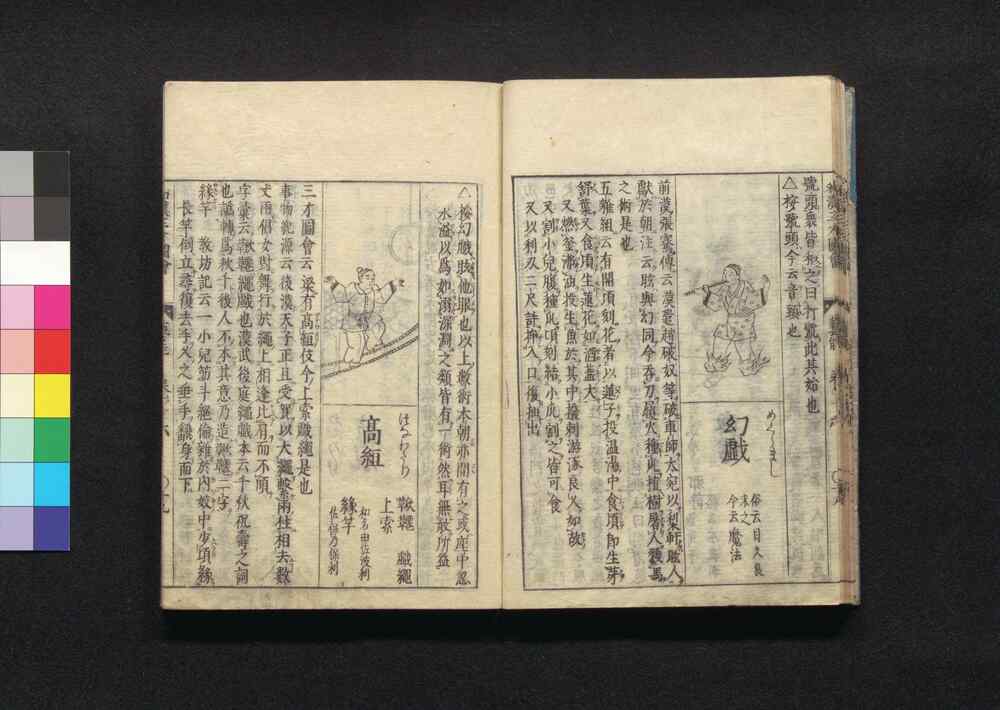 號頭衆皆和之曰打號此其始也
△按號頭今云音頭也
めくらまし
幻戯
俗云目久良
末之
今云魔法
前漢張騫傳云漢遣趙破奴等破車師大宛以黎軒眩人
獻於朝注云眩與幻同今吞刀吐火種瓜植樹屠人截馬
之術是也
五雜組云有開頃刻花者以蓮子投温湯中食頃即生芽
舒葉又食頃生蓮花如酒盞大
又燃釜沸油投生魚於其中撥剌游泳良久如故
又割小兒腹種瓜頃刻結小瓜割之皆可食
又以利刃二尺許插入口復抽出
△按幻戯眩他眼也以上數術本朝亦間有之或座中忽
水溢以爲如雨深淵之類皆有一術然耳無敢所益
はなわたり
高絙
鞦韆 戯繩
上索
和名由佐波利
緣竿
三才圖會云梁有高絙伎今上索戯繩是也
事物紀源云後漢天子正旦受賀以大繩繫兩柱相去數
丈兩倡女對舞行於繩上相逢比肩而不頃
字彙云鞦韆繩戯也漢武後庭繩戯本云千秋祝壽之詞
也訛轉爲秋千後人不本其意乃造鞦韆二字
緣竿 教坊記云一小兒筋斗絕倫雜於內妓中少頃緣
長竿倒立尋復去手久之垂手翻身而下